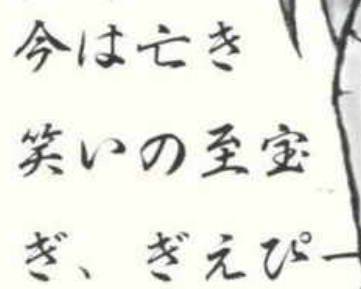 今は亡き
笑いの至宝
ぎ、ぎえぴー